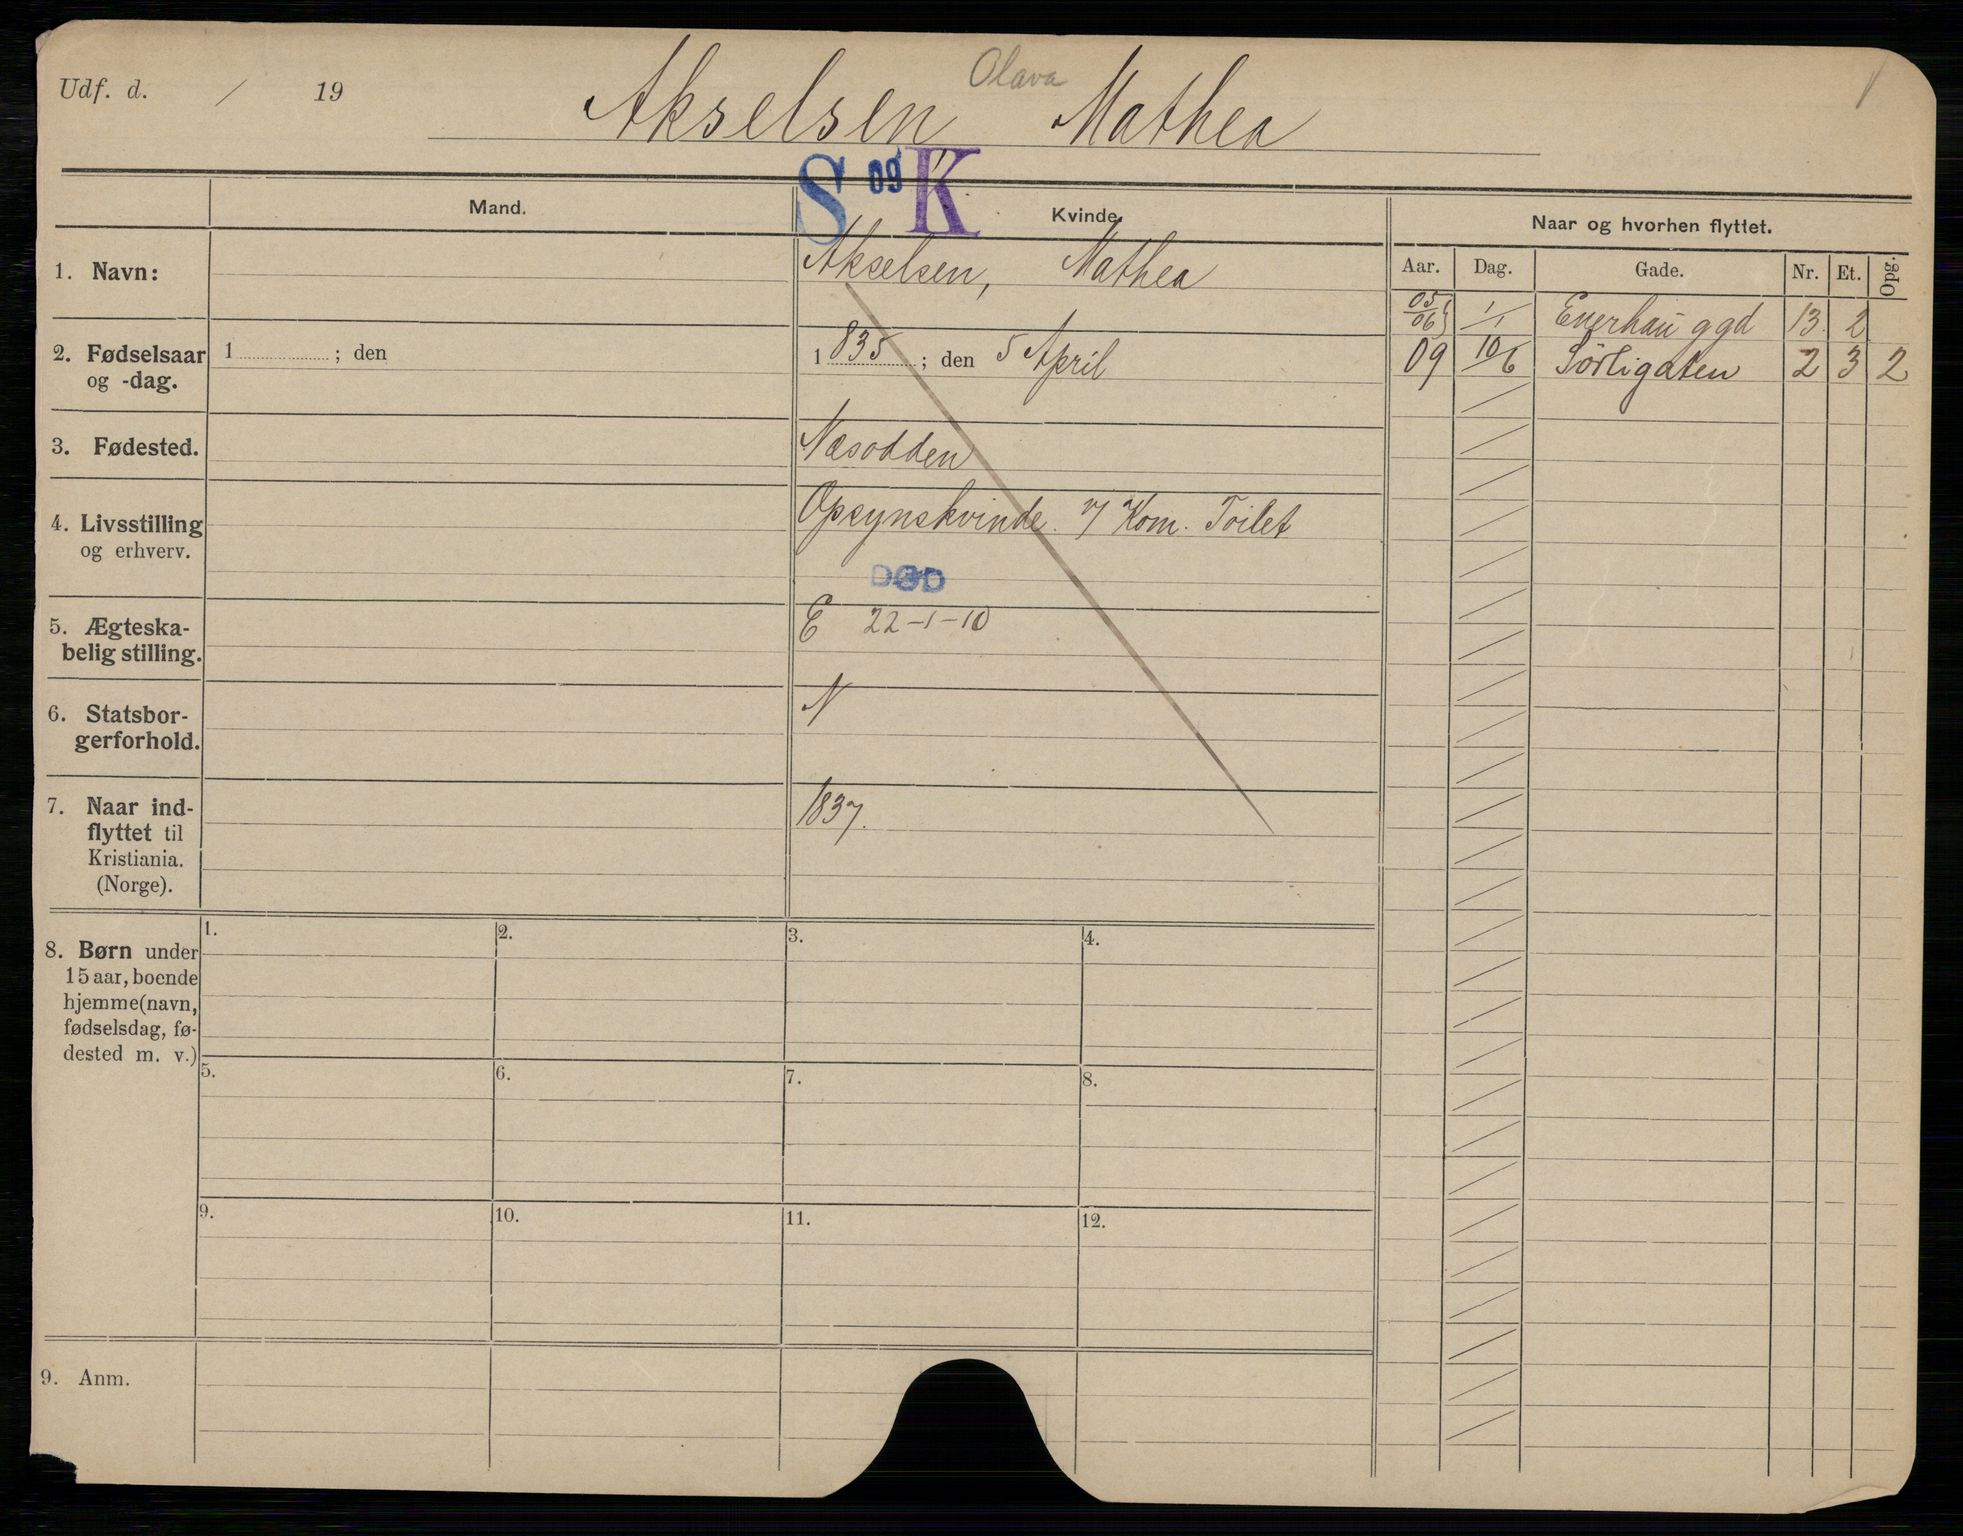 Udf. d. / 19
Olava
Akselsen, Mathea
S 09 K
Mand.
Kvinde.
Naar og hvorhen flyttet.
Aar. Dag. Gade. Nr. Et. Opg.
1. Navn:
Akselsen, Mathea
05/06 1/1 Enerhauggd 13. 2
09 10/6 Sörligaten 2 3 2
2. Fødselsaar
og -dag.
1 ; den
1835 ; den 5 April
3. Fødested.
Næsodden
4. Livsstilling
og erhverv.
Opsynskvinde v/ Kom. Toilet
DØD
5. Ægteska-
belig stilling.
E 22-1-10
6. Statsbor-
gerforhold.
N
7. Naar ind-
flyttet til
Kristiania.
(Norge).
1837.
8. Børn under
15 aar, boende
hjemme (navn,
fødselsdag, fø-
dested m. v.)
1. 2. 3. 4.
5. 6. 7. 8.
9. 10. 11. 12.
9. Anm.